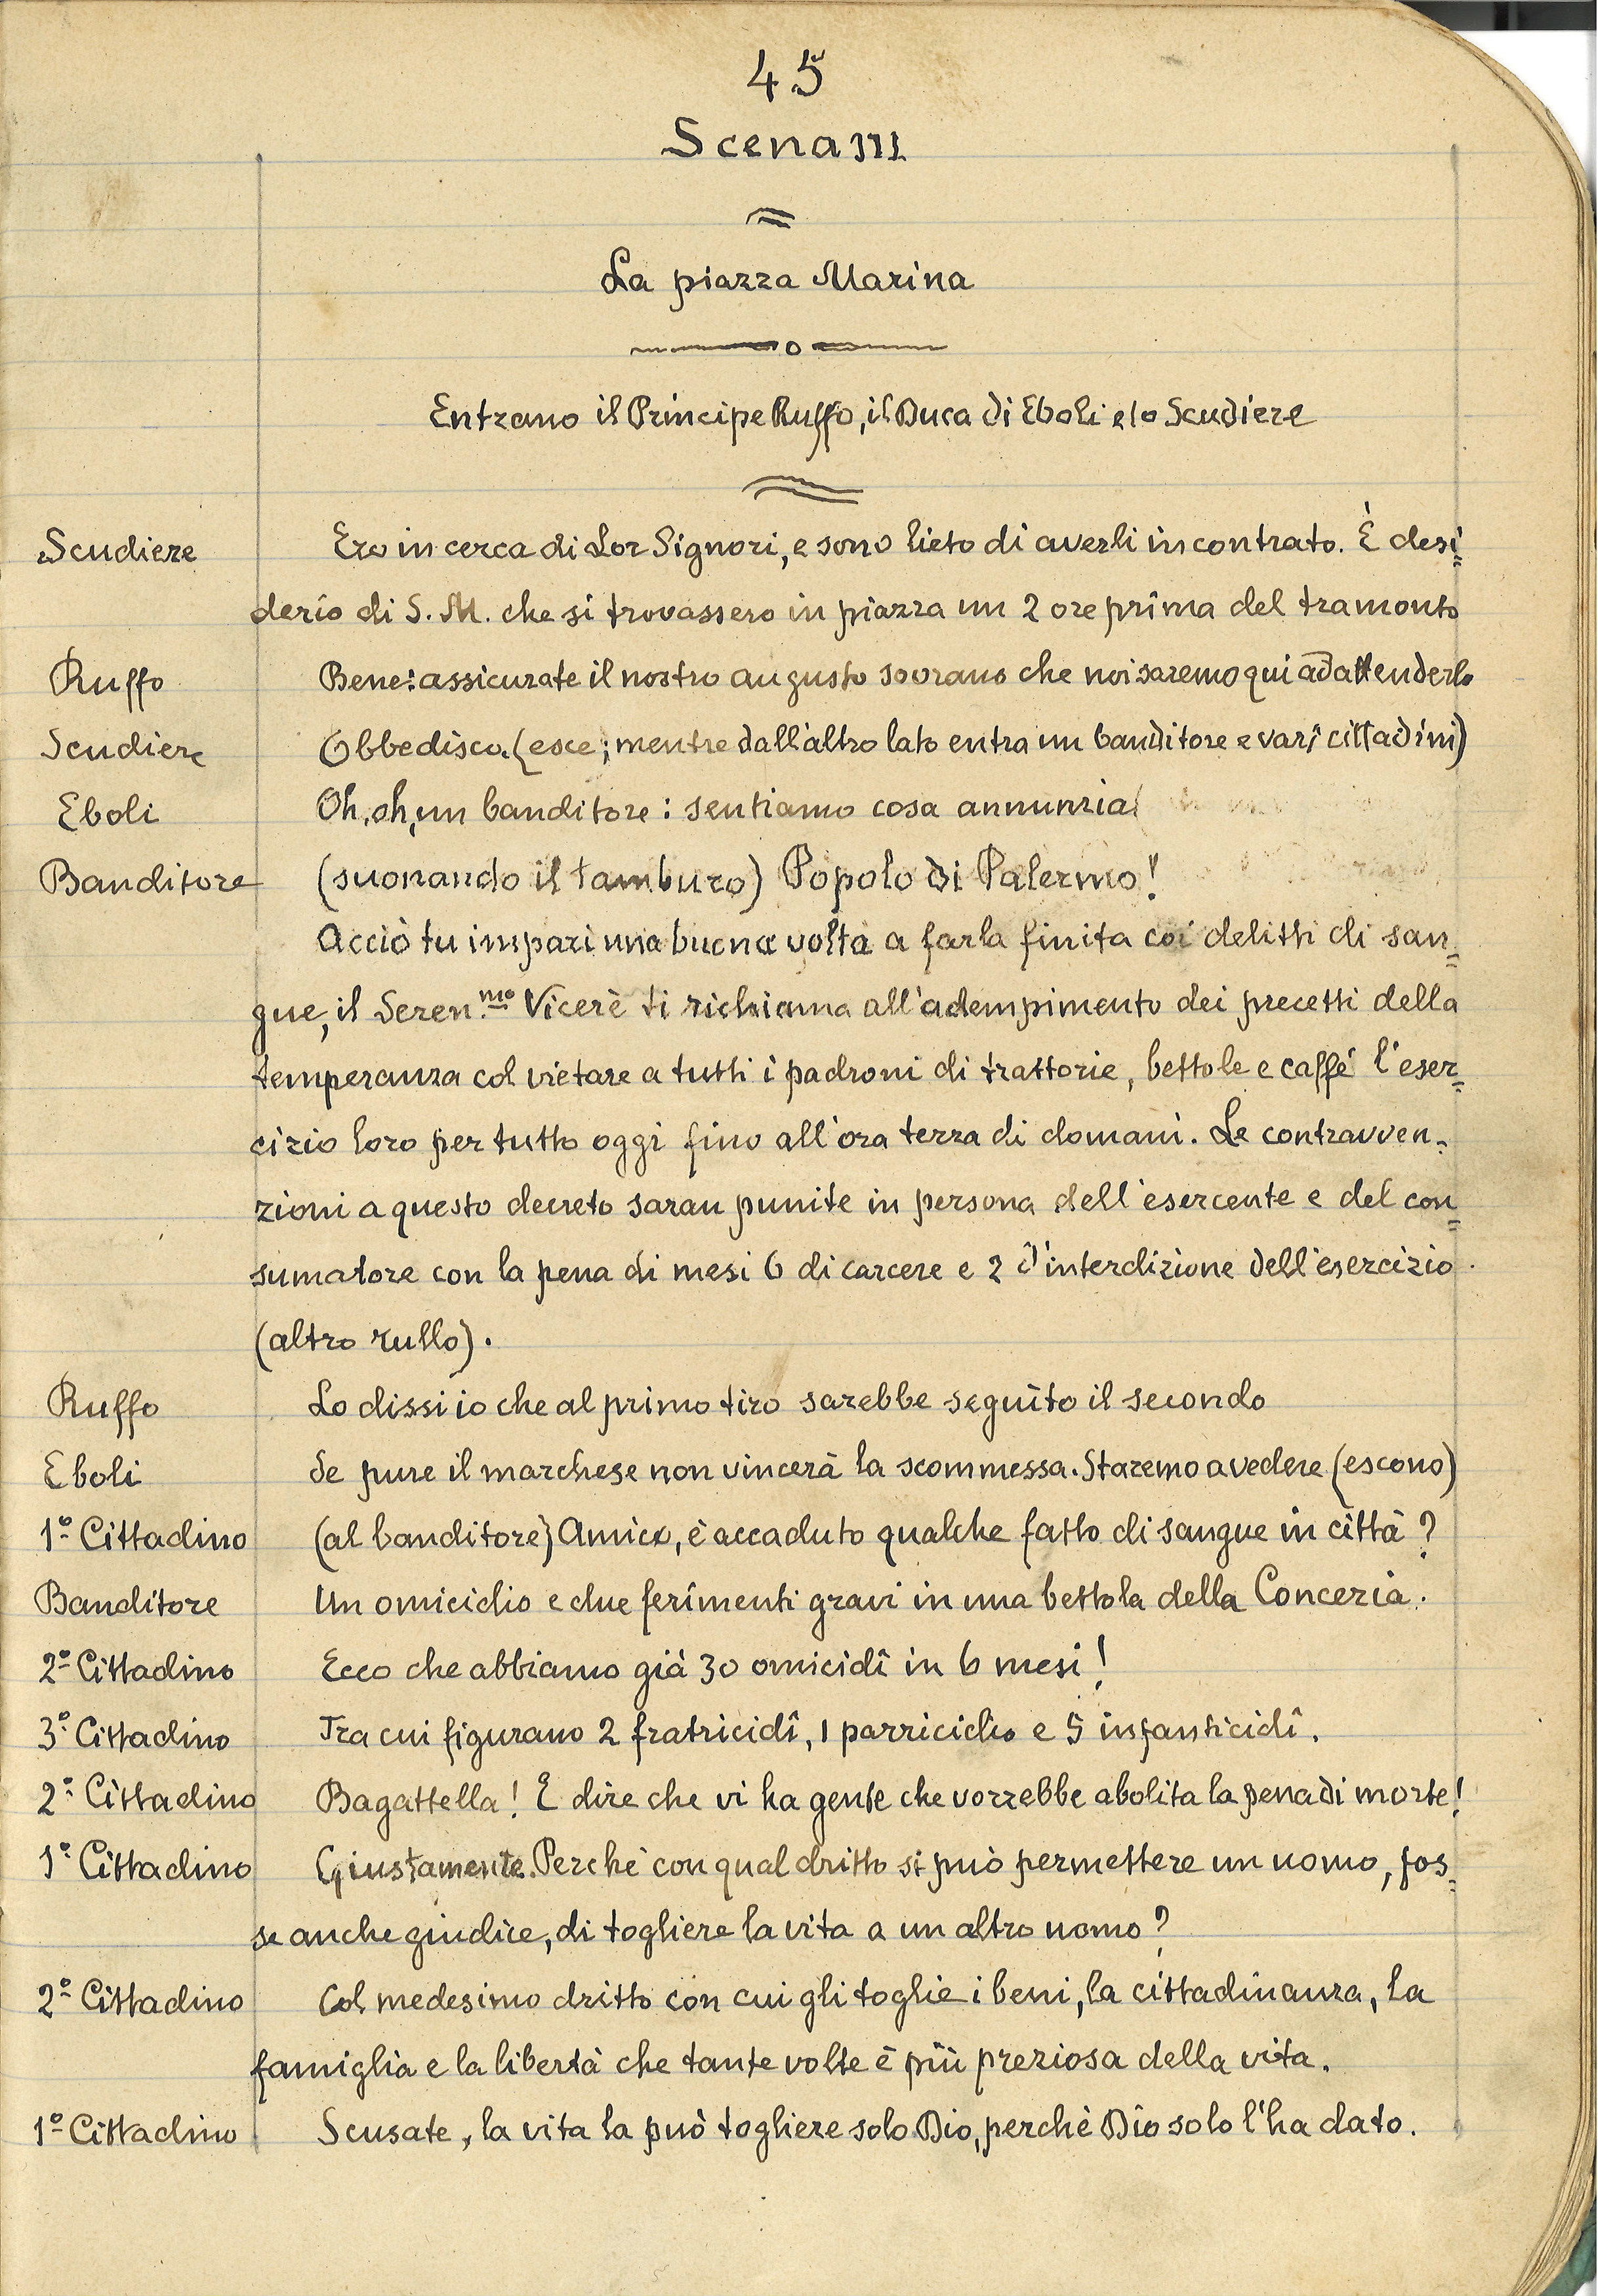 45
Scena III
La piazza Marina
Entrano il Principe Ruffo, il Duca di Eboli e lo Scudiere
Scudiere Ero in cerca di Lor Signori, e sono lieto di averli incontrato. È desi=
derio di S. M. che si trovassero in piazza un 2 ore prima del tramonto
Ruffo Bene: assicurate il nostro augusto sovrano che noi saremo qui ad attenderlo
Scudiere Obbedisco (esce; mentre dall'altro lato entra un banditore e varî cittadini)
Eboli Oh, oh, un banditore: sentiamo cosa annunzia
Banditore (suonando il tamburo) Popolo di Palermo!
Acciò tu impari una buona volta a farla finita coi delitti di san=
gue, il Seren.mo Vicerè ti richiama all'adempimento dei precetti della
temperanza col vietare a tutti i padroni di trattorie, bettole e caffé l'eser=
cizio loro per tutto oggi fino all'ora terza di domani. Le contravven=
zioni a questo decreto saran punite in persona dell'esercente e del con=
sumatore con la pena di mesi 6 di carcere e 2 d'interdizione dell'esercizio.
(altro rullo).
Ruffo Lo dissi io che al primo tiro sarebbe seguito il secondo
Eboli Se pure il marchese non vincerà la scommessa. Staremo a vedere (escono)
1º Cittadino (al banditore) Amico, è accaduto qualche fatto di sangue in città?
Banditore Un omicidio e due ferimenti gravi in una bettola della Conceria.
2º Cittadino Ecco che abbiamo già 30 omicidî in 6 mesi!
3º Cittadino Tra cui figurano 2 fratricidî, 1 parricidio e 5 infanticidî.
2º Cittadino Bagattella! E dire che vi ha gente che vorrebbe abolita la pena di morte!
1º Cittadino Giustamente. Perchè con qual dritto si può permettere un uomo, fos=
se anche giudice, di togliere la vita a un altro uomo?
2º Cittadino Col medesimo dritto con cui gli toglie i beni, la cittadinanza, la
famiglia e la libertà che tante volte è più preziosa della vita.
1º Cittadino Scusate, la vita la può togliere solo Dio, perchè Dio solo l'ha dato.